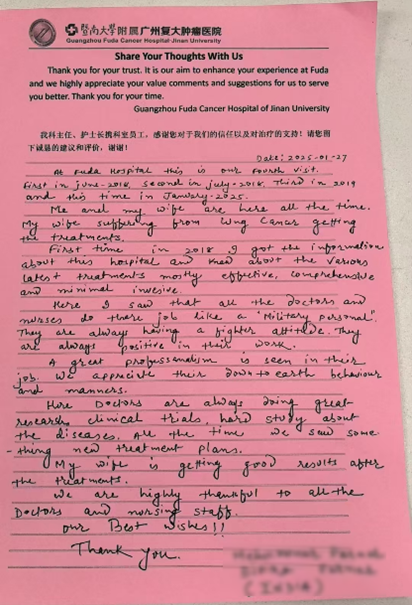 暨南大學附属广州复大肿瘤医院
Guangzhou Fuda Cancer Hospital·Jinan University
Share Your Thoughts With Us
Thank you for your trust. It is our aim to enhance your experience at Fuda
and we highly appreciate your value comments and suggestions for us to serve
you better. Thank you for your time.
Guangzhou Fuda Cancer Hospital of Jinan University
我科主任、护士长携科室员工，感谢您对于我们的信任以及对治疗的支持！请您留
下诚恳的建议和评价，谢谢！
Date: 2025-01-27
At Fuda Hospital this is our fourth visit.
First in june-2018, second in july-2018, Third in 2019
and this time in January-2025.
Me and my wife are here all the time.
My wife suffering from Lung Cancer getting
the treatments.
First time in 2018 I got the information
about this hospital and knew about the various
latest treatments mostly effective, comprehensive
and minimal invesive.
Here I saw that all the doctors and
nurses do there job like a "Military personal".
They are always having a fighter attitude. They
are always positive in their work.
A great professnalism is seen in their
job. We appreciate their down to earth behaviour
and manners.
Here Doctors are always doing great
research, clinical trials, hard study about
the diseases. All the time we saw some
-thing new treatment plans.
My wife is getting good results after
the treatments.
We are highly thankful to all the
Doctors and nursing staff.
Our Best wishes!!
Thank you.
(India)